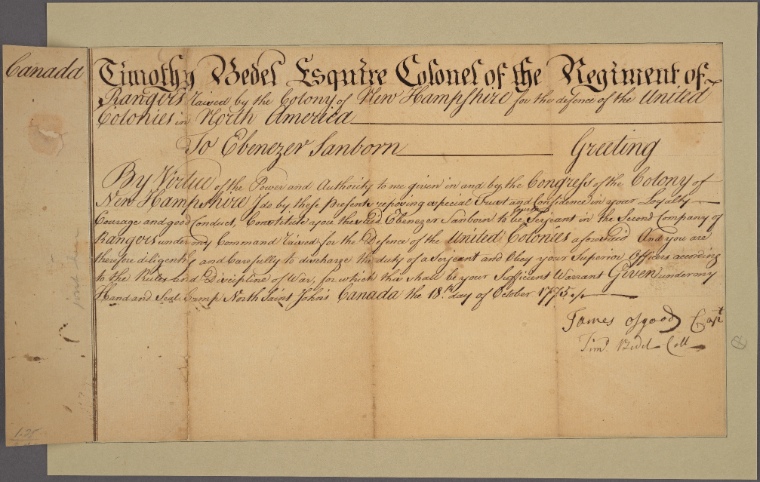 Canada
Timothy Bedel Esquire Colonel of the Regiment of
Rangers raised by the Colony of New Hampshire for the defence of the United
Colonies in North America
To Ebenezer Sanborn Greeting
By Virtue of the Power and Authority to me given in and by the Congress of the Colony of
New Hampshire I do by these Presents reposing especial Trust and Confidence in your Loyalty
Courage and good Conduct, Constitute you the said Ebenezer Sanborn to be Serjeant in the Second Company of
Rangers under my Command raised for the Defence of the United Colonies aforesaid And you are
therefore diligently and Carefully to discharge the duty of a Serjeant and Obey your Superior Officers according
to the Rules and Discipline of War, for which this shall be your Sufficient Warrant Given under my
Hand and Seal Camp North Saint John's Canada the 18th day of October 1775
James Osgood Capt
Timo Bedel Coll